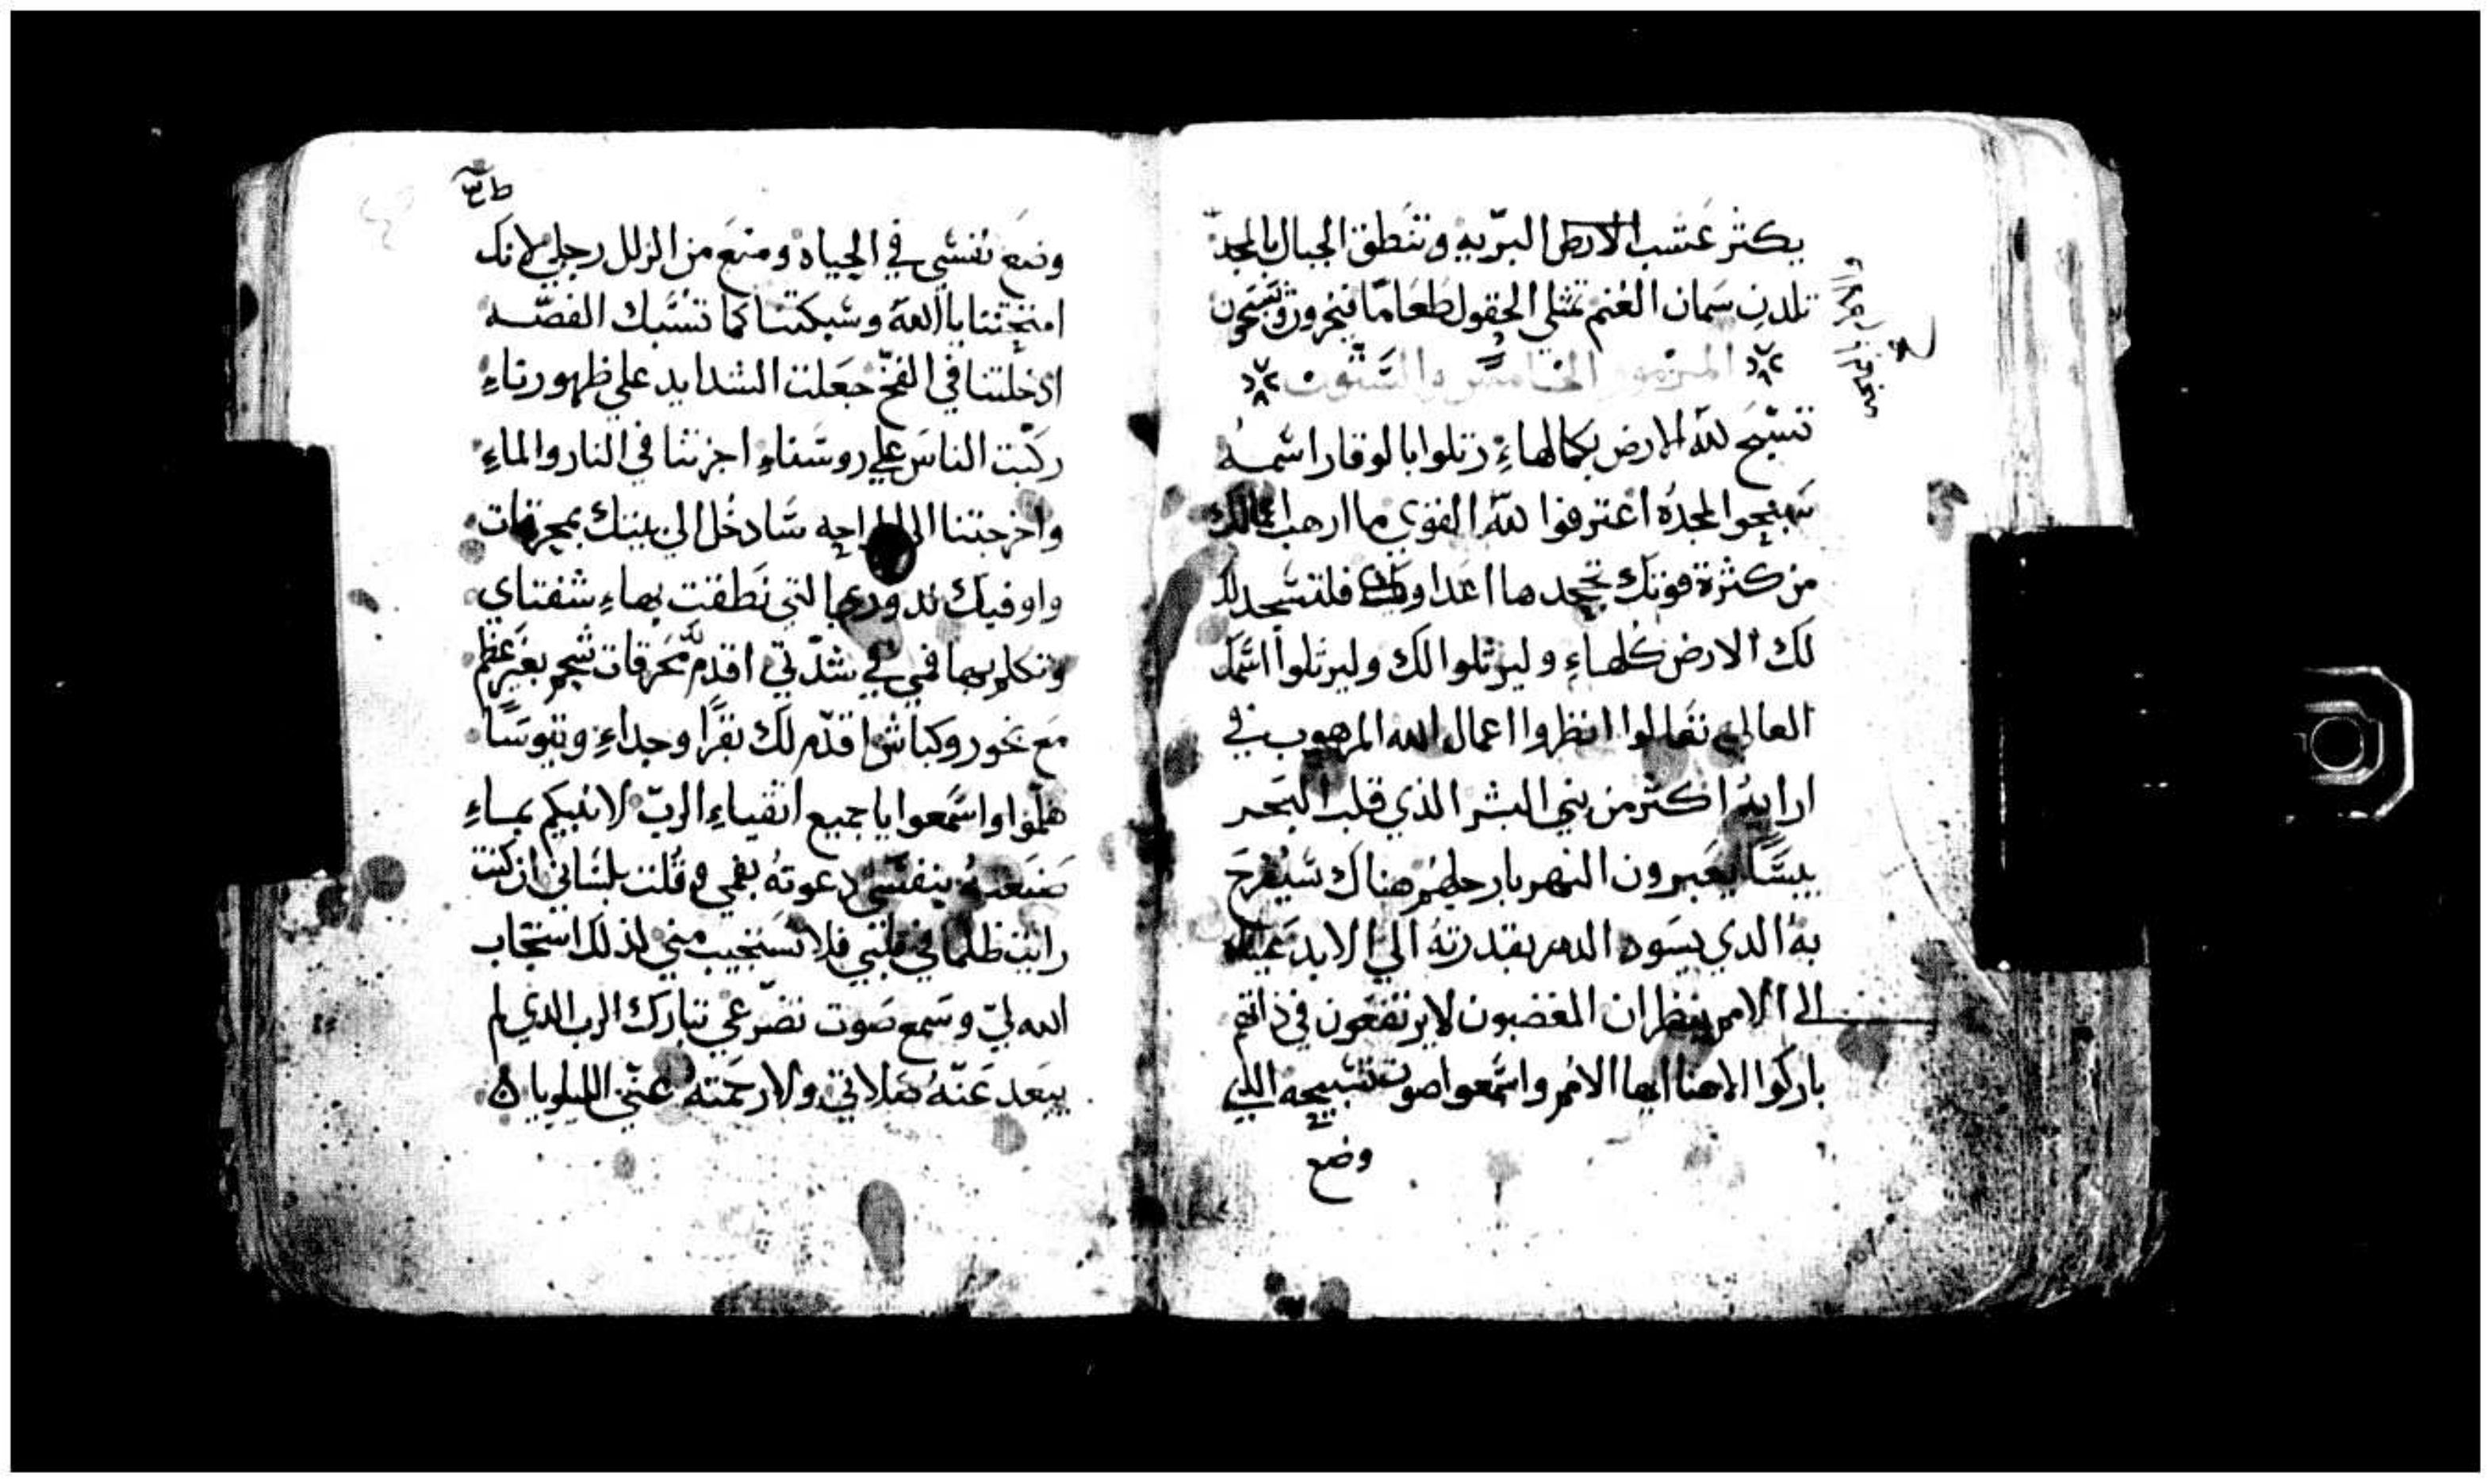 يكثر عشب الارض البريه وتنطق الجبال بالمجد
تلدن سمان الغنم تمتلي الحقول طعاما فيخرون ويسبحون
المزمور الخامس والستون
تسبح لله الارض بكمالها رتلوا بالوقار اسمه
سبحوا لمجده اعترفوا لله القوي ما ارهب اعمالك
من كثرة قوتك تجحدها اعداوك فلتسجد لك
لك الارض كلها وليرتلوا لك وليرتلوا اسمك
العالي تعالوا انظروا اعمال الله المرهوب في
ارايه اكثر من بني البشر الذي قلب البحر
يبسا يعبرون النهر بارجلهم هناك سيفرح
به الذي يسود الدهر بقدرته الي الابد عيناه
الي الامم ينظران المغضبون لا يرتفعون في ذاتهم
باركوا الاهنا ايها الامم واسمعوا صوت تسبيحه الذي
وضع
وضع نفسي في الحياه ومنع من الزلل رجلي لانك
امتحنتنا يا الله وسبكتنا كما تسبك الفضه
ادخلتنا في الفخ جعلت الشدايد علي ظهورنا
ركبت الناس علي روسنا اجزتنا في النار والماء
واخرجتنا الي الراحه سادخل الي بيتك بمحرقات
واوفيك ندوري التي نطقت بها شفتاي
وتكلم بها فمي في شدتي اقدم لك محرقات شحم بغير عظم
مع بخور وكباش اقدم لك بقرا وجداء وتيوسا
هلموا واسمعوا يا جميع اتقياء الرب لانبيكم بماء
صنعه بنفسي دعوته بفمي وقلت بلساني ان كنت
رايت ظلما في قلبي فلا تستجيب مني لذلك استجاب
الله لي وسمع صوت تضرعي تبارك الرب الذي لم
يبعد عنه صلاتي ولا رحمته عني الليلويا